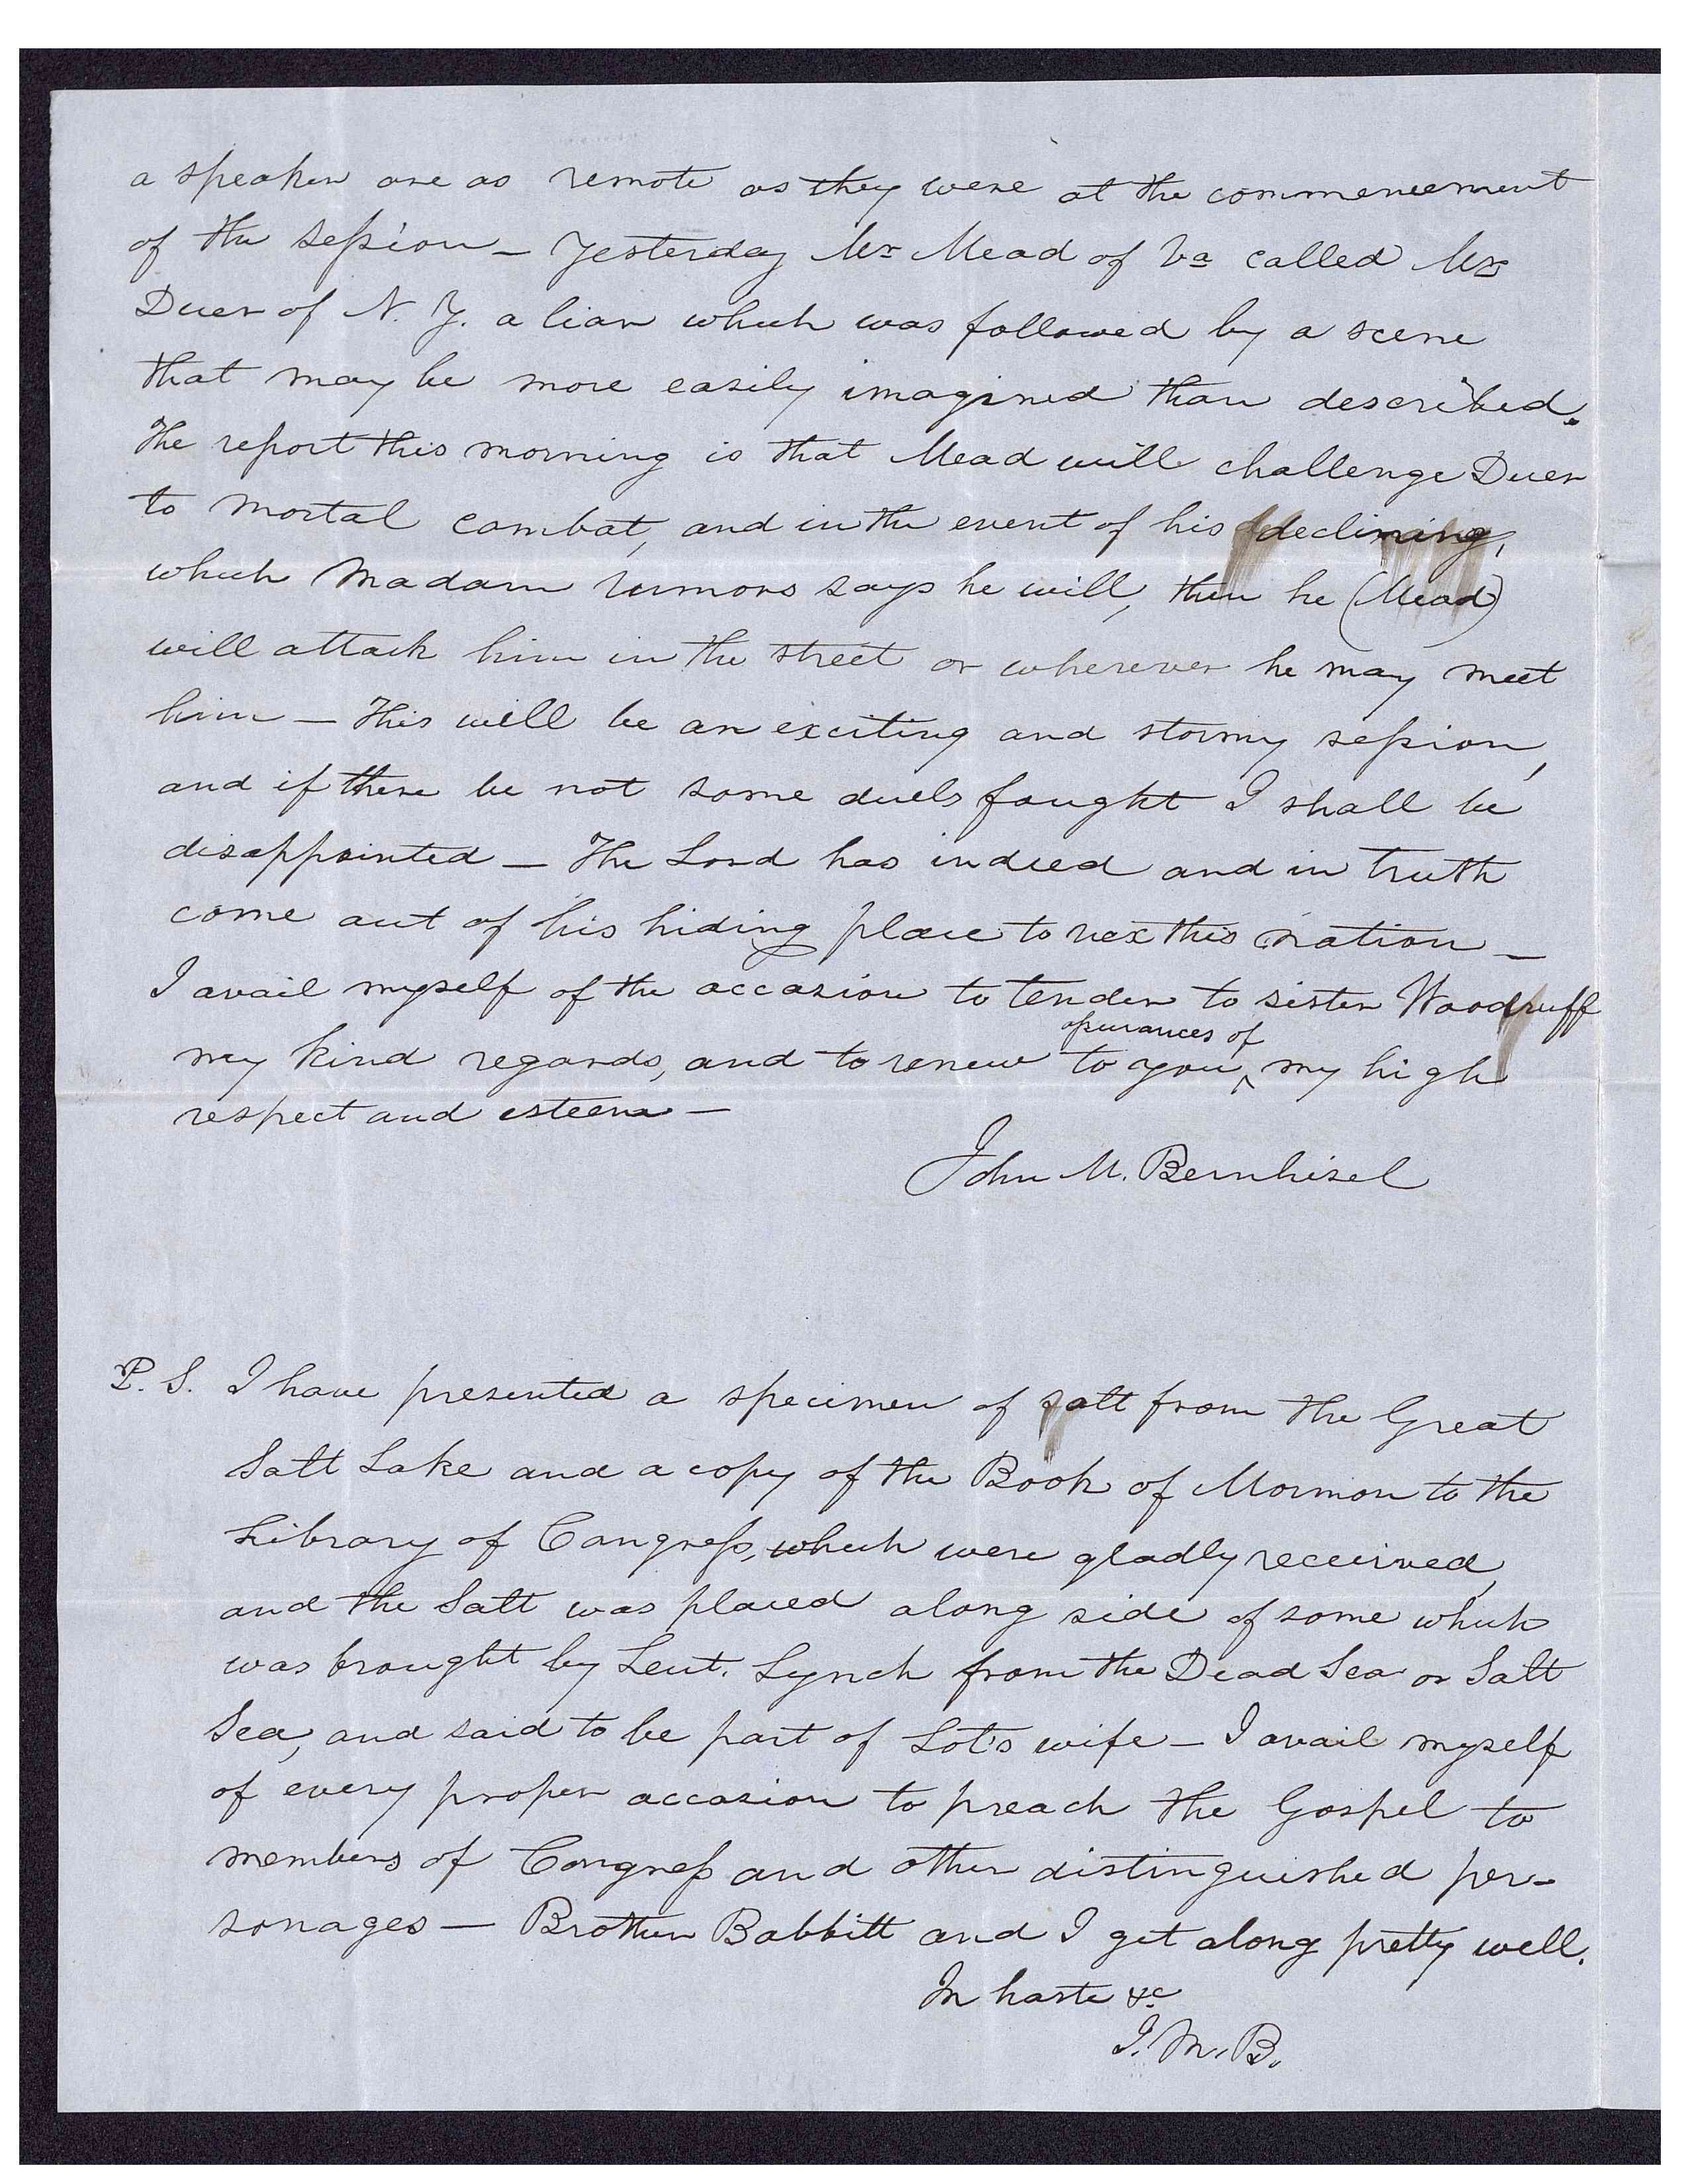 a speaker are as remote as they were at the commencement
of the session – Yesterday Mr Mead of Va called Mr
Duer of N. Y. a liar which was followed by a scene
that may be more easily imagined than described.
The report this morning is that Mead will challenge Duer
to mortal combat, and in the event of his declining,
which Madam rumors says he will, then he (Mead)
will attack him in the street or wherever he may meet
him – This will be an exciting and stormy session,
and if there be not some duels fought I shall be
disappointed – The Lord has indeed and in truth
come out of his hiding place to vex this nation –
I avail myself of the occasion to tender to sister Woodruff
assurances of
my kind regards, and to renew to you ^ my high
respect and esteem –
John M. Bernhisel
P. S. I have presented a specimen of salt from the Great
Salt Lake and a copy of the Book of Mormon to the
Library of Congress, which were gladly received,
and the Salt was placed along side of some which
was brought by Leut. Lynch from the Dead Sea or Salt
Sea, and said to be part of Lot's wife – I avail myself
of every proper occasion to preach the Gospel to
members of Congress and other distinguished per-
sonages – Brother Babbitt and I get along pretty well.
In haste &c
J. M. B.